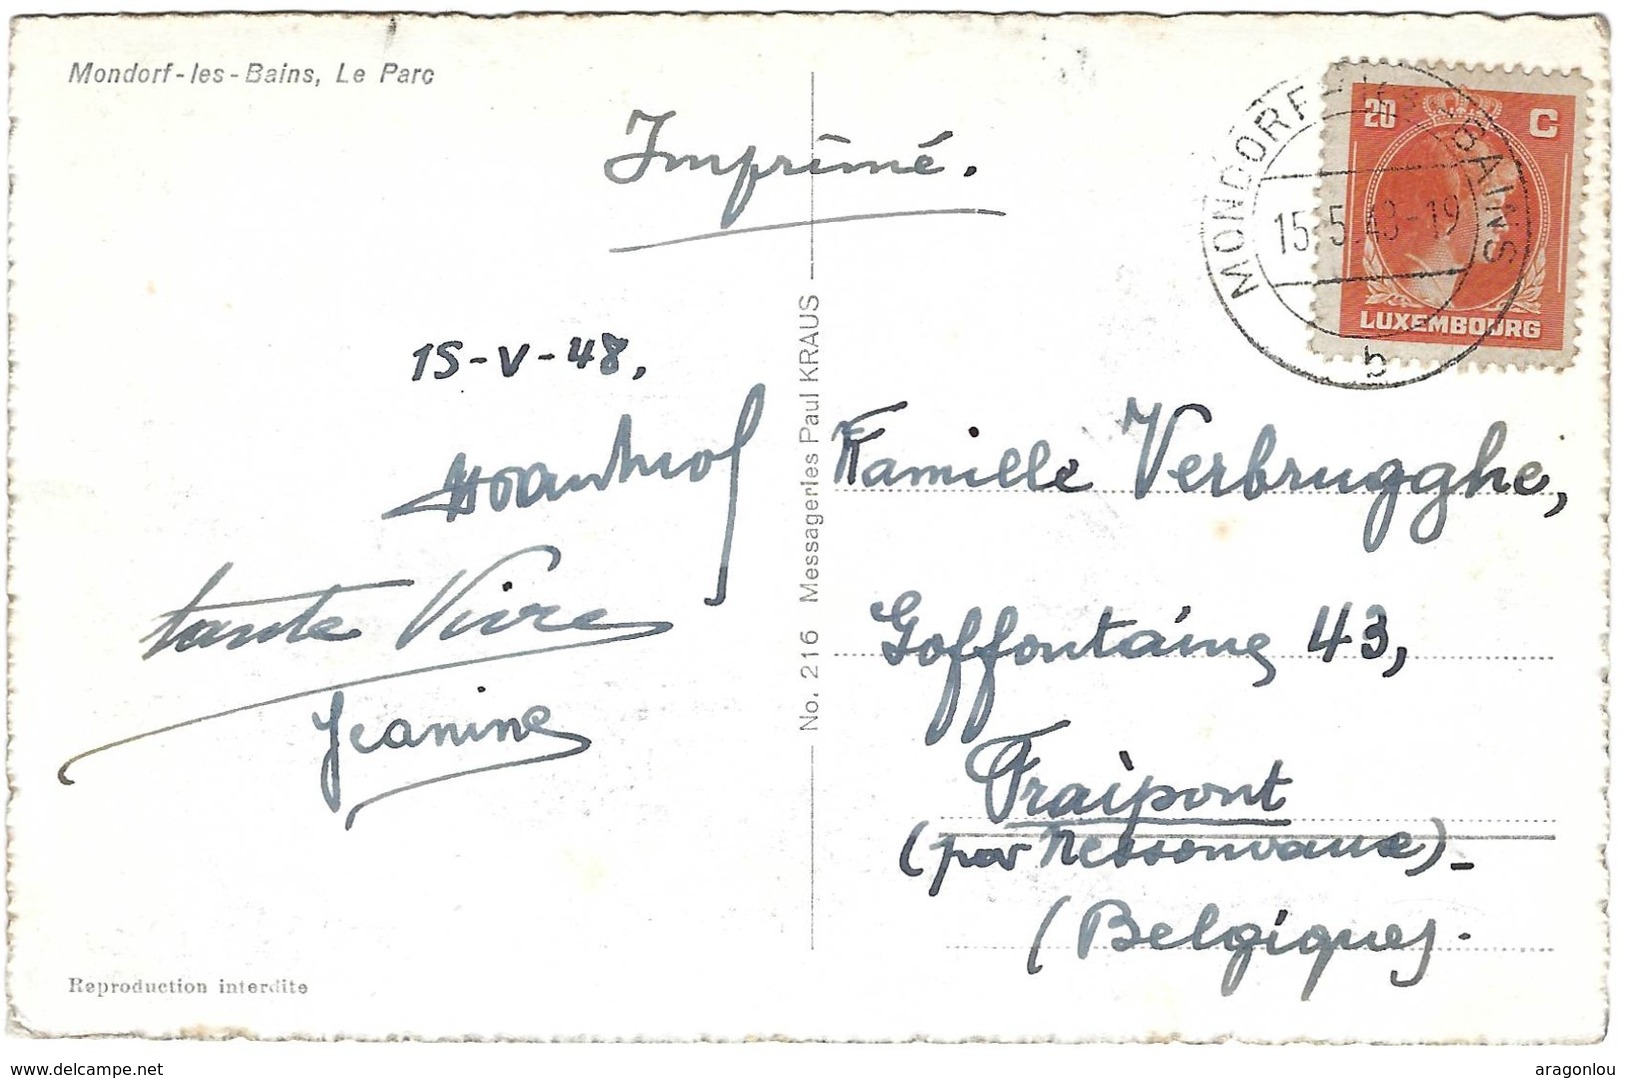 Mondorf-les-Bains, Le Parc
Imprimé.
MONDORF-LES-BAINS
15.5.48-19
b
20 C
LUXEMBOURG
15-V-48,
tante
Jeanine
No. 216 Messageries Paul KRAUS
Famille Verbrugghe,
Goffontaine 43,
Fraipont
(par Nessonvaux)-
(Belgique).
Reproduction interdite
www.delcampe.net
aragonlou